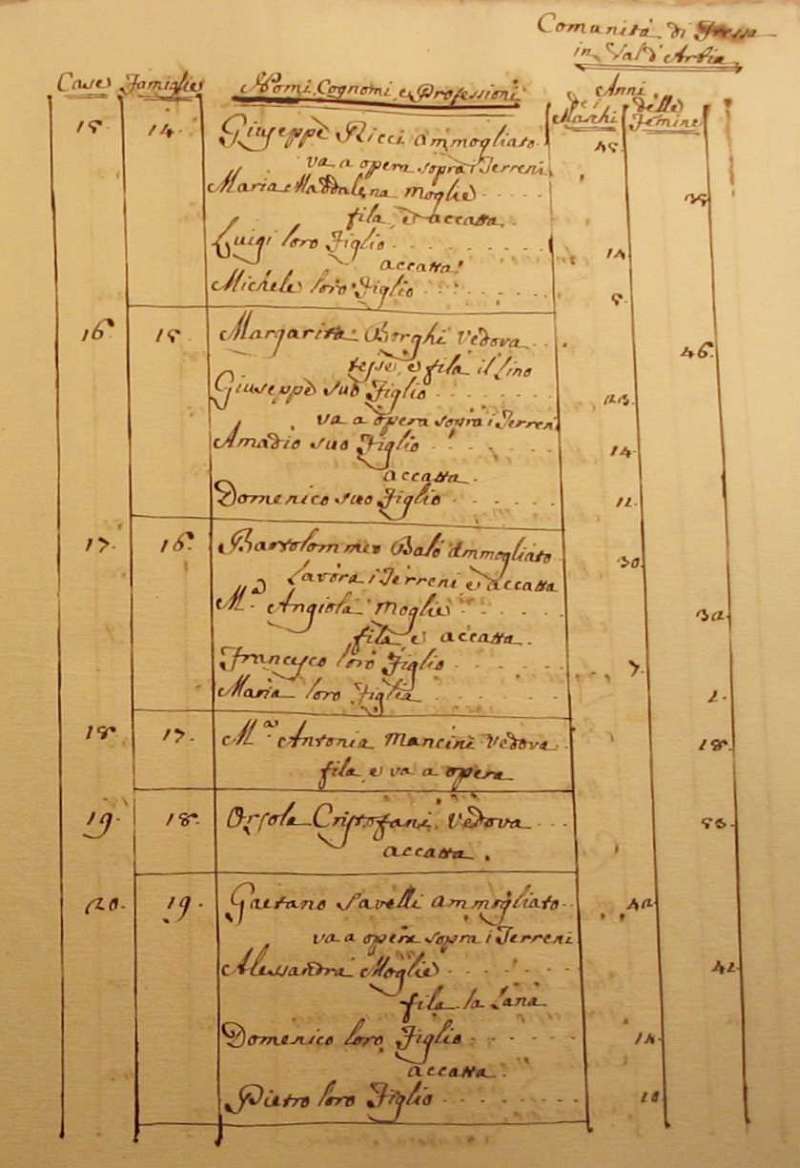 Comunità di
in Val d'Arbia
Case Famiglie Nomi, Cognomi, e Professioni Anni
dei Maschi delle Femine
15 14. Giuseppe Ricci Ammogliato 45
va a opera sopra i Terreni
Maria Maddalena Moglie
fila, e accatta.
Luigi loro Figlio 14
accatta.
Michele loro Figlio
16 15 Margarita Borghi Vedova 46.
tesse, e fila il lino
Giuseppe suo Figlio
va a opera sopra i Terreni
Amadio suo Figlio 14
accatta.
Domenico suo Figlio 12.
17. 16. Bartolommeo Ammogliato 30
lavora i Terreni e accatta
M.a Angiola Moglie 32
fila, e accatta.
Francesco loro Figlio 7.
Maria loro Figlia
18 17. M.a Antonia Mancini Vedova
fila e va a opera
19. 18. Orsola Cristofani Vedova
accatta.
20. 19. Gaetano Savelli Ammogliato
va a opera sopra i Terreni
Alessandra Moglie 42
fila la lana
Domenico loro Figlio 14
accatta.
Pietro loro Figlio 10